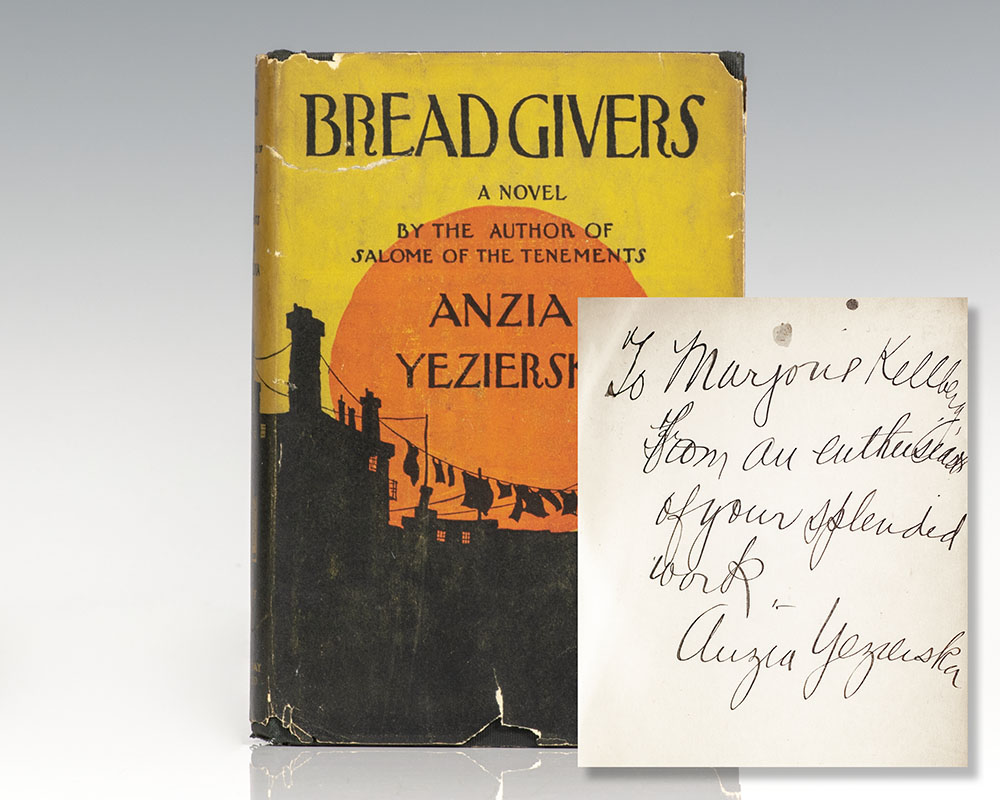 BREAD GIVERS
A NOVEL
BY THE AUTHOR OF
SALOME OF THE TENEMENTS
ANZIA
YEZIERSK
To Marjorie Kellberg
From an enthusiast
of your splendid
work
Anzia Yezierska